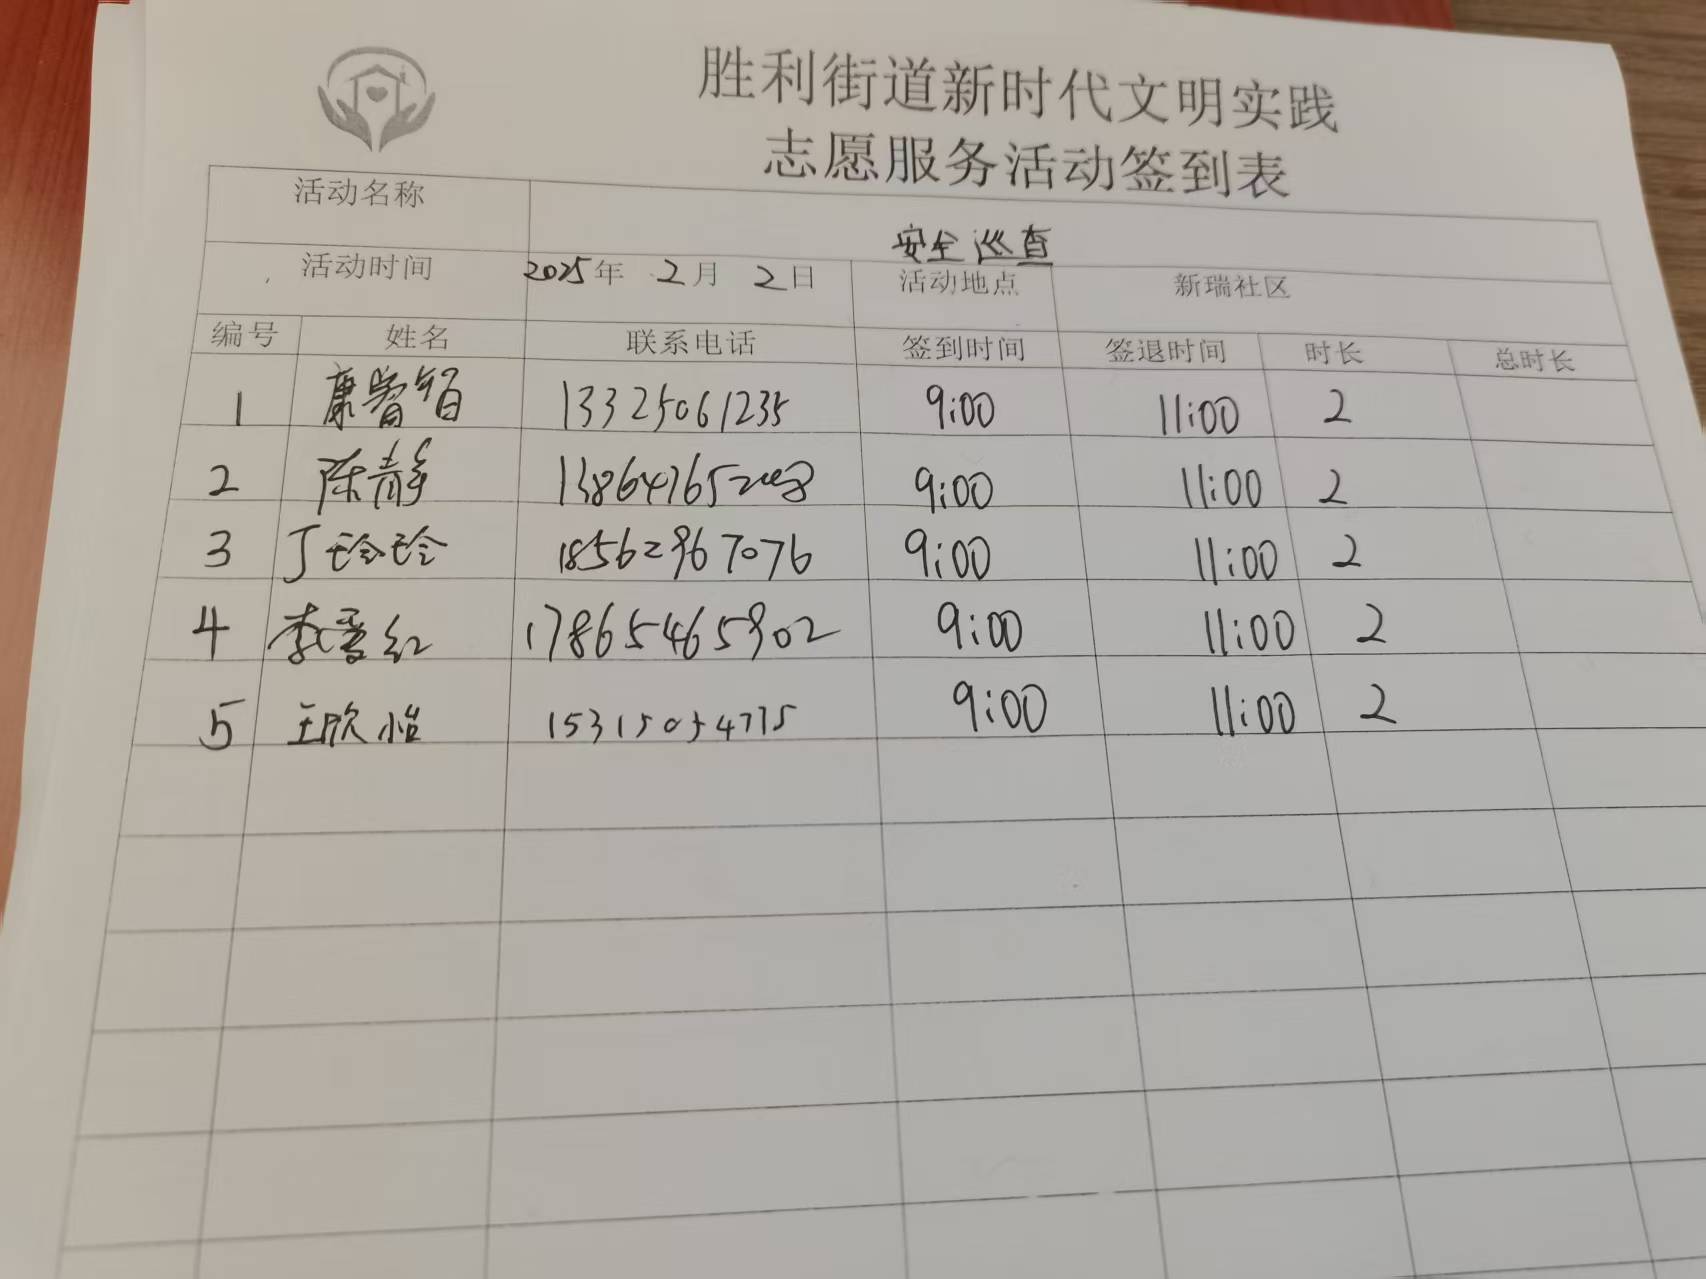 胜利街道新时代文明实践
志愿服务活动签到表
活动名称 安全巡查
活动时间 2025年 2月 2日 活动地点 新瑞社区
编号 姓名 联系电话 签到时间 签退时间 时长 总时长
1 康 13325061235 9:00 11:00 2
2 陈静 9:00 11:00 2
3 丁玲玲 18562967076 9:00 11:00 2
4 李 红 17865465902 9:00 11:00 2
5 王欣怡 15315054775 9:00 11:00 2